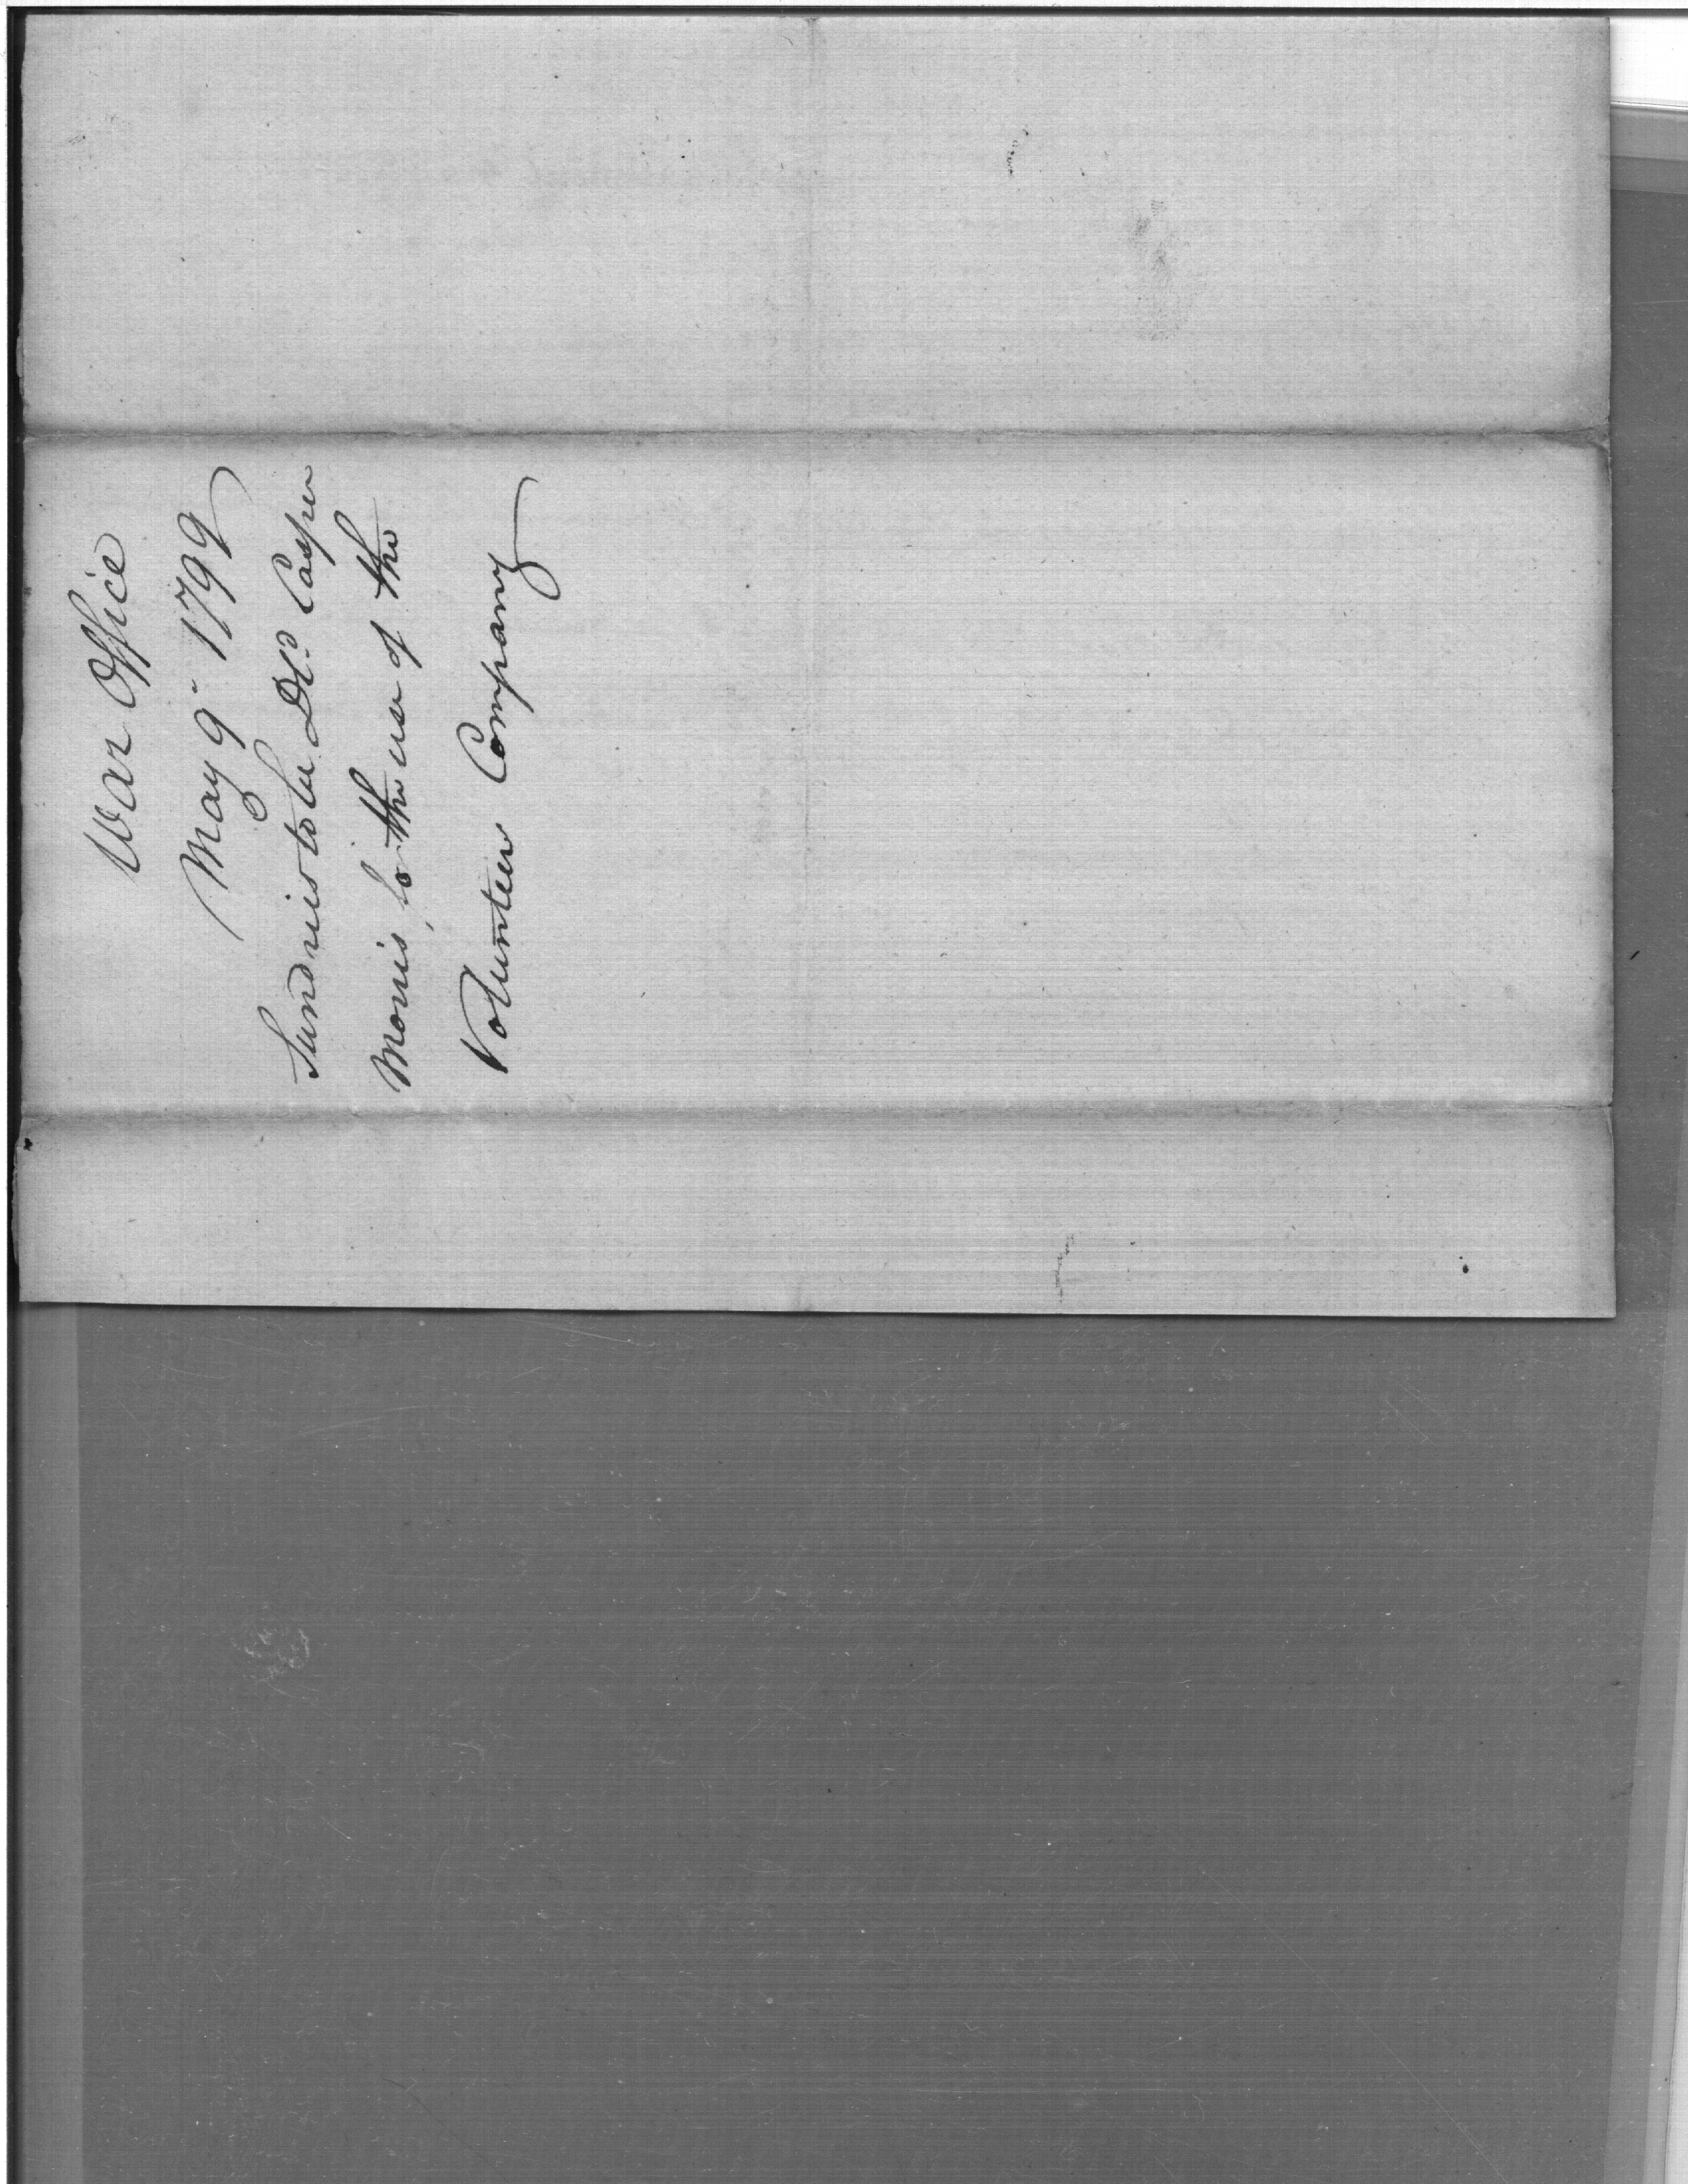 War Office
May 9" 1799
Sundries to be Dld. Casper
Morris, for the use of the
Volunteer Company